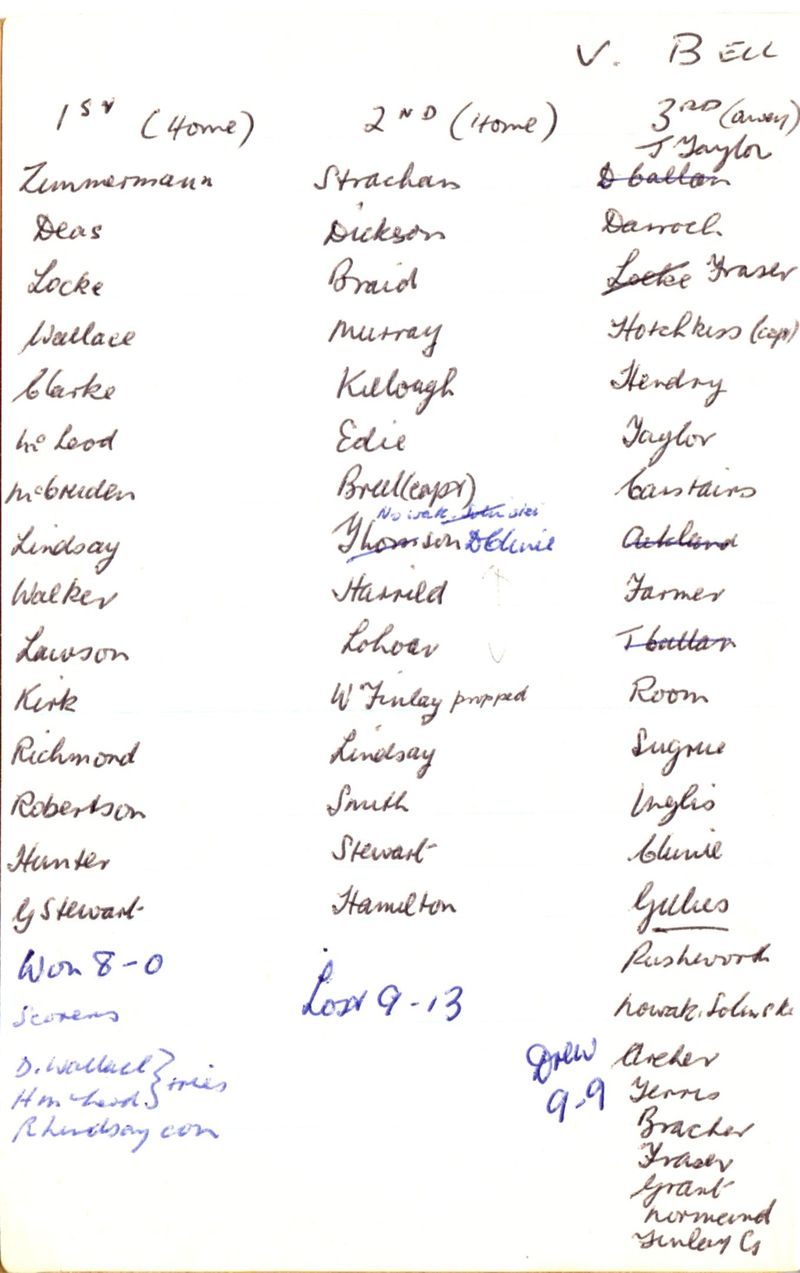 V. BELL
1ST (Home)
Zimmermann
Deas
Locke
Wallace
Clarke
McLeod
McCreiden
Lindsay
Walker
Lawson
Kirk
Richmond
Robertson
Hunter
G Stewart
Won 8-0
Scorers
D. Wallace } tries
H McLeod }
R Lindsay con
2ND (Home)
Strachan
Dickson
Braid
Murray
Killough
Edie
Breel (capt)
Nowak-Solinski
Thomson D Clunie
Harrild
Lohoar
W Finlay propped
Lindsay
Smith
Stewart
Hamilton
Lost 9-13
3RD (away)
J Taylor
D Callan
Darroch
Locke Fraser
Hotchkiss (capt)
Hendry
Taylor
Carstairs
Ackland
Farmer
T Callan
Room
Sugrue
Inglis
Clunie
Gillies
Rushworth
Nowak-Solinski
Archer
Ferris
Bracher
Fraser
Grant
Normand
Finlay G
Drew
9-9